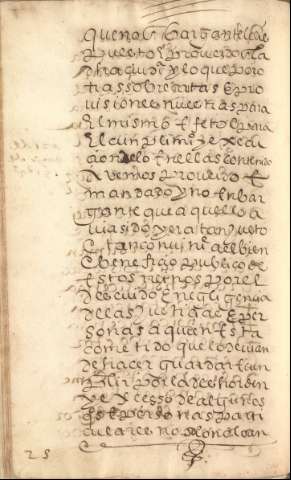 que no enbargante
puesto e proveydo
y lo que por o
tras sobrecartas e pro
visiones nuestras para
el mismo efeto e para
el cunplimi y exequ
cion delo en ellas contenido
avemos proveido e
mandado y no enbar
gante que aquello a
via sido y era tan justo
e tan convini al bien
e beneficio publico de
estos reinos por el
descuido e negligencia
de las justicias e per
sonas a quien esta
cometido que lo devian
de hacer guardar e cun
plir por la desorden
y excesso de algunos
personas parti
culares no solo no loan
25